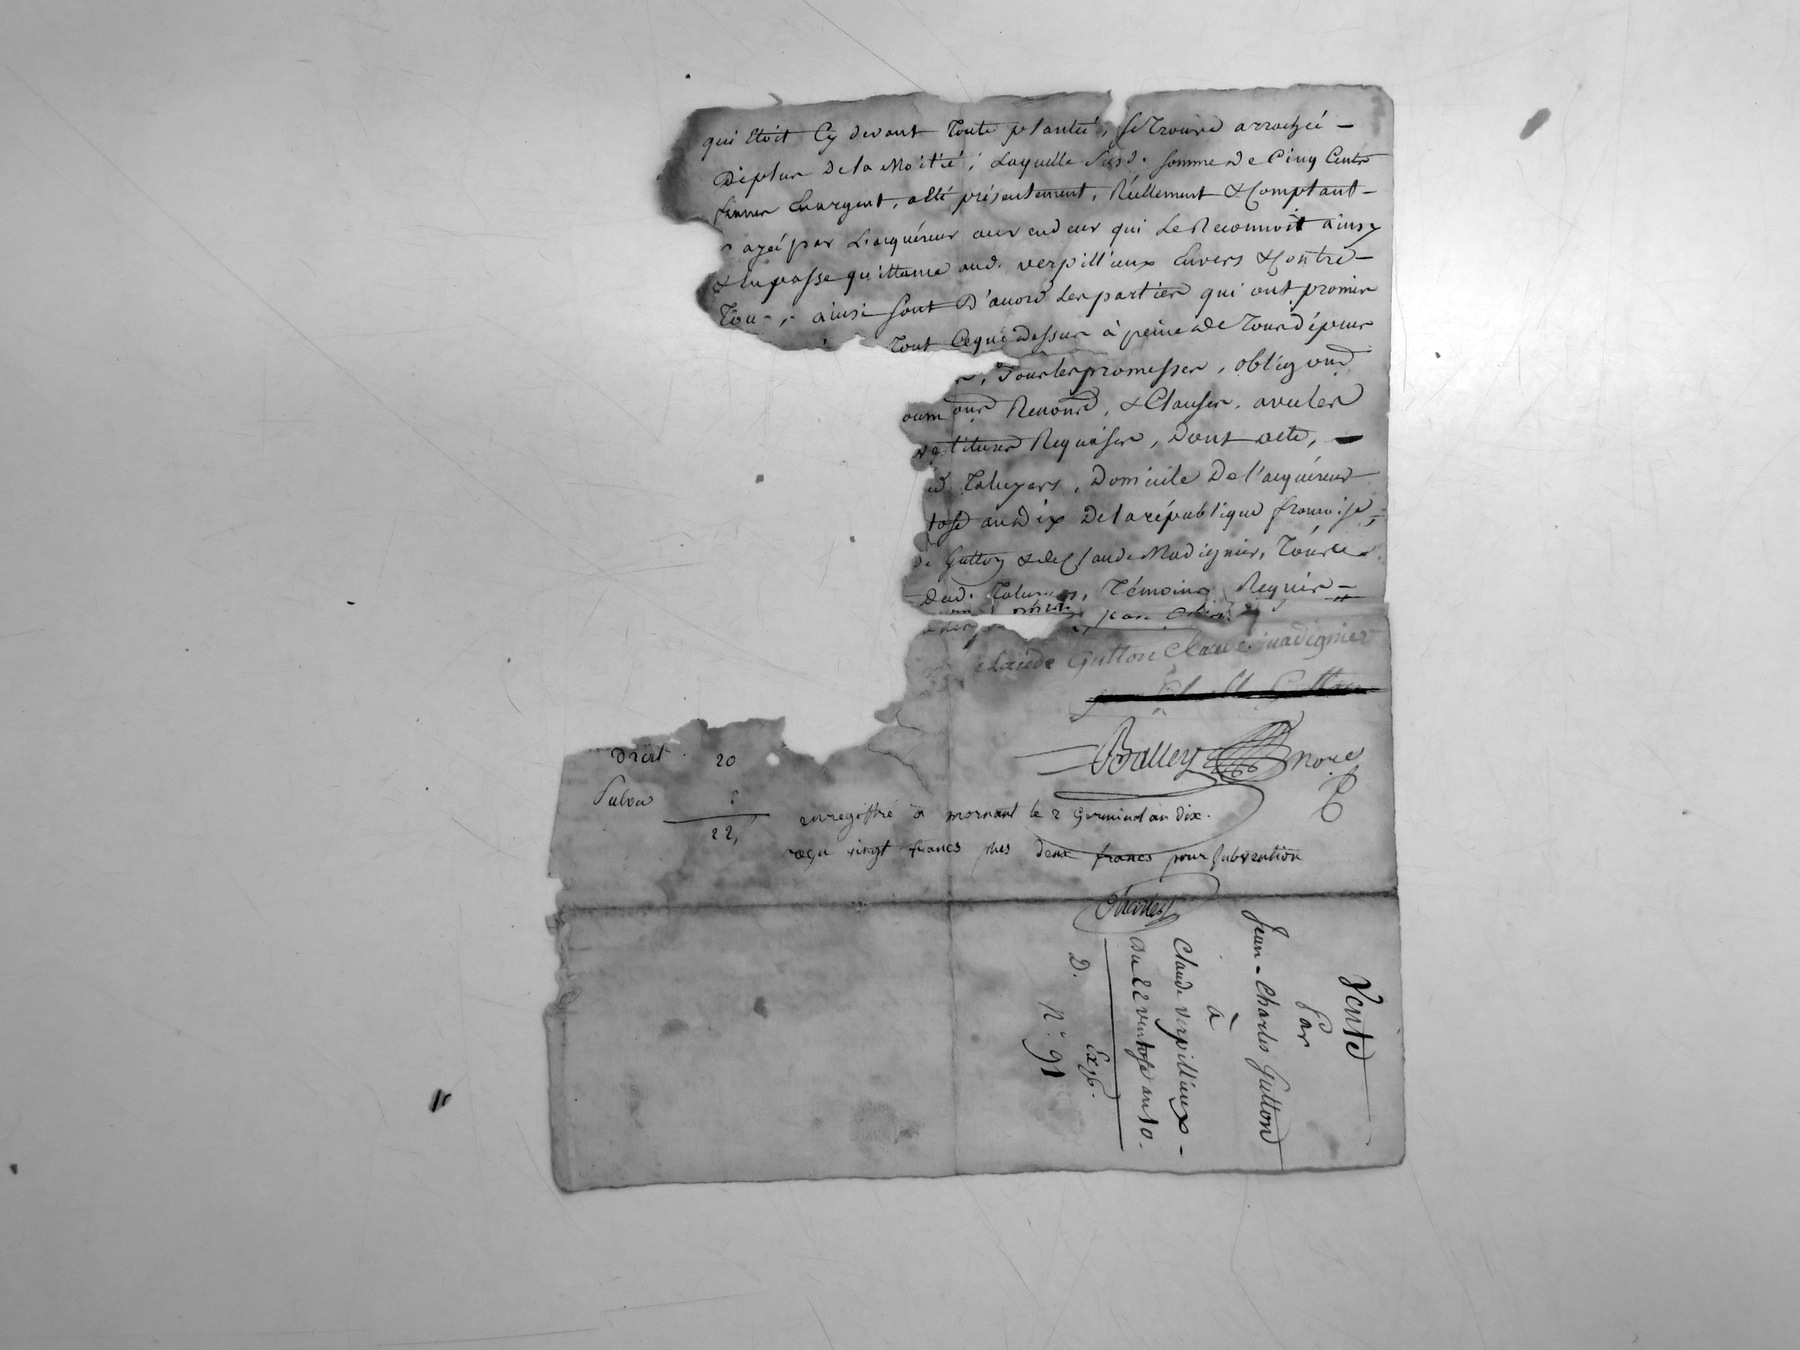 qui Etoit Cy devant Toute plantée, se Trouve arrachée -
Déplus De la Moitié; Laquelle Susd. somme de Cinq Cents
francs En argent, a Eté présentement, Réellement & Comptant -
ayée par L'acquéreur au vendeur qui Le Reconnoit ainsy
& En passe quittance aud. verpillieux Envers & Contre -
Tou-, ainsi sont D'accord Les parties qui ont promis
Tout Ce qui dessus à peine de Tous dépens
Tous les promesses, obligons
oum ons Renond, & Clauses, avec les
Requises, Dont acte, -
d Taluyers, Domicile De l'acquéreur
tose an Dix De la république françoise,
de Gutton & de Claude Madignier, Tous
Dud. Taluyers, Témoins Requis -
jean
claude Gutton Claude madignier
Balley nore
Droit . 20
Subvn 2
22,
enregistré à mornant le 2 Germinal an dix.
reçu vingt francs plus deux francs pour subvention
Vente
Par
Jean-Charles Gutton
à
Claude verpillieux -
Du 22 ventose an 10.
D. Exp.
N.° 91